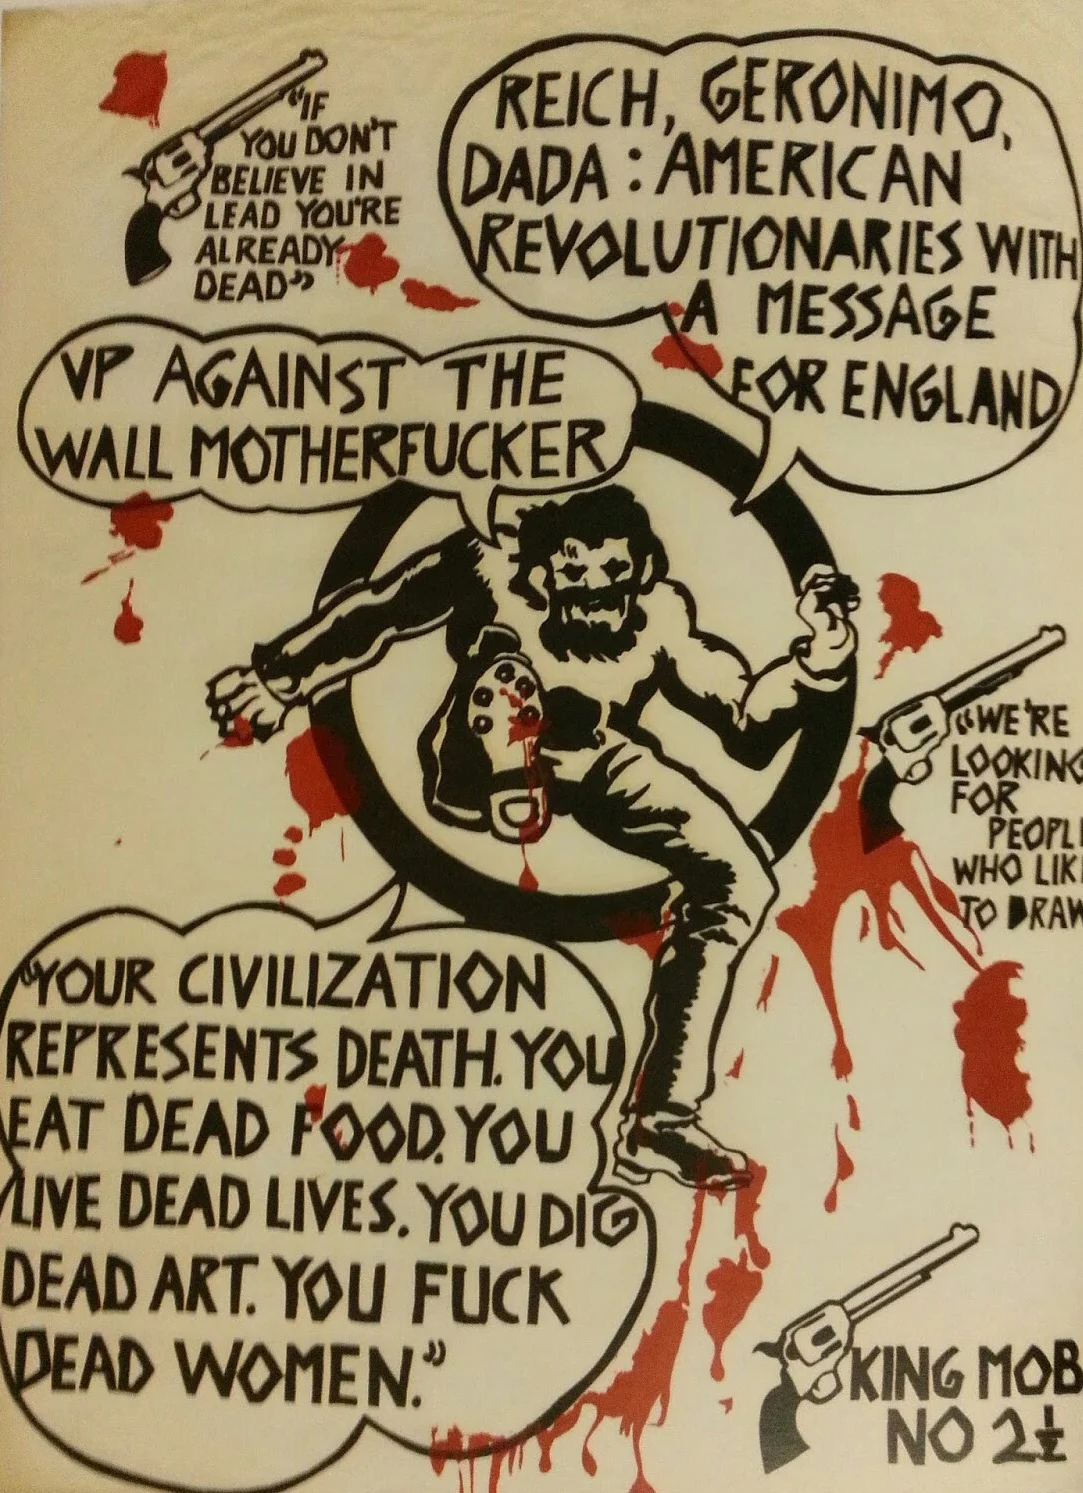 "IF
YOU DON'T
BELIEVE IN
LEAD YOU'RE
ALREADY
DEAD"
REICH, GERONIMO,
DADA : AMERICAN
REVOLUTIONARIES WITH
A MESSAGE
FOR ENGLAND
UP AGAINST THE
WALL MOTHERFUCKER
"WE'RE
LOOKING
FOR
PEOPL
WHO LIK
TO DRAW
"YOUR CIVILIZATION
REPRESENTS DEATH. YOU
EAT DEAD FOOD. YOU
LIVE DEAD LIVES. YOU DIG
DEAD ART. YOU FUCK
DEAD WOMEN."
KING MOB
NO 2½